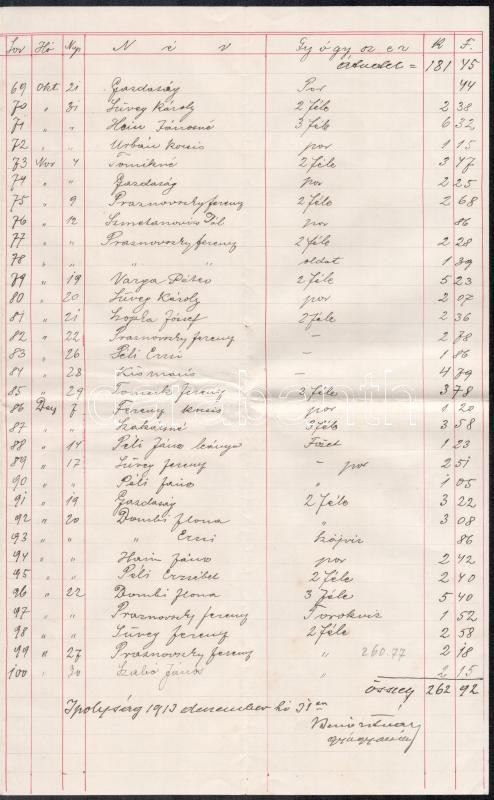 Sor Hó Nap Név Gyógyszer K F.
Átvétel = 181 45
69 Okt 21 Gazdaság Por 44
70 " 31 Süveg Károly 2 féle 2 38
71 " " Hain Jánosné 3 féle 6 32
72 " " Urbán kocsis por 1 15
73 Nov 4 Tomikné 2 féle 3 47
74 " " Gazdaság por 2 25
75 " 9 Praznovszky ferenc 2 féle 2 68
76 " 12 Pál por 86
77 " " Praznovszky ferenc 2 féle 2 28
78 " " " " oldat 1 39
79 " 19 Varga Péter 2 féle 5 23
80 " 20 Süveg Károly por 2 07
81 " 21 József 2 féle 2 36
82 " 22 Praznovszky ferenc – 2 78
83 " 26 Péli Erzsi – 1 86
84 " 28 Kismaris – 4 79
85 " 29 Tomcik Ferenc 2 féle 3 78
86 Dez 7 Ferenc kocsis por 1 20
87 " " 3 féle 3 58
88 " 14 Péli János leánya Főzet 1 23
89 " 17 Süveg ferenc – por 2 51
90 " " Péli János " 1 05
91 " 19 Gazdaság 2 féle 3 22
92 " 20 Dombi Ilona " 3 08
93 " " " Erzsi Szájvíz 86
94 " " Hain János por 2 42
95 " " Péli Erzsébet 2 féle 2 40
96 " 22 Dombi Ilona 3 féle 5 40
97 " " Praznovszky ferenc Torokvíz 1 52
98 " " Süveg Ferenc 2 féle 2 58
99 " 27 Praznovszky ferenc " 260.77 2 18
100 " 30 Szabó János " 2 15
összeg 262 92
Ipolyság 1913 december hó 31 én
gyógyszerész
darabanth